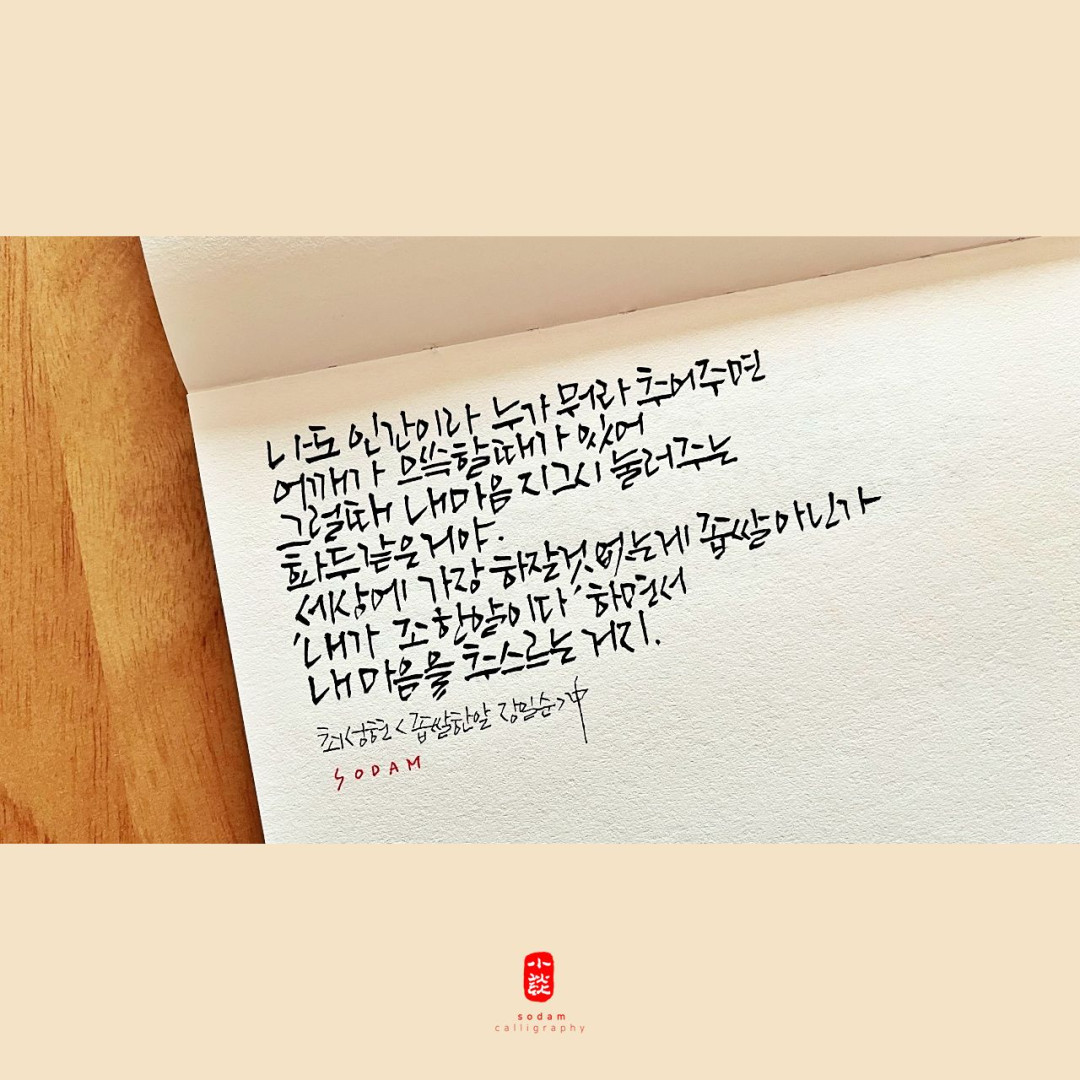 나도 인간이라 누가 뭐라 추어주면
어깨가 으쓱할때가 있어
그럴때 내마음 지그시 눌러주는
화두같은거야.
세상에 가장 하잘것없는게 좁쌀아닌가
'내가 조한알이다' 하면서
내마음을 추스르는 거지.
최성현 <좁쌀한알 장일순> 中
SODAM
小談
sodam
calligraphy